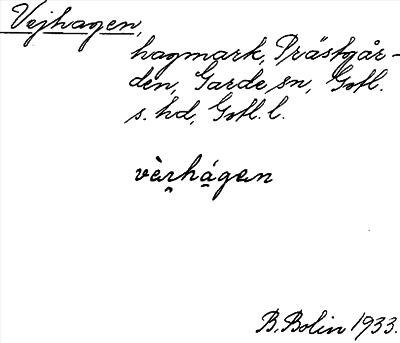 Vejhagen,
hagmark, Prästgår-
den, Garde sn, Gotl.
s. hd, Gotl. l.
vèr̯hága̱n
B. Bolin 1933.